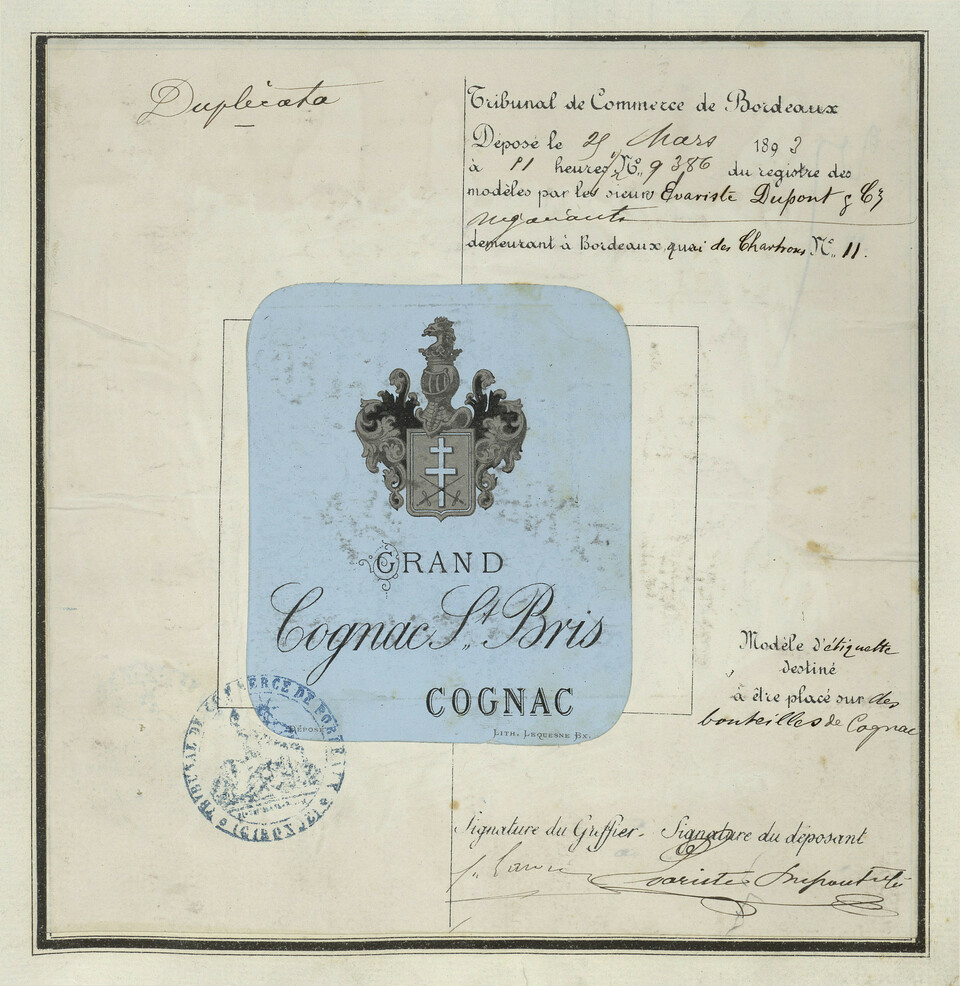 Duplicata
Tribunal de Commerce de Bordeaux
Déposé le Mars 1893
à 11 heures 1/2 N° 9386 du registre des
modèles par les sieurs Evariste Dupont & Cie
négociants
demeurant à Bordeaux, quai des Chartrons N° 11.
GRAND
Cognac St Bris
COGNAC
DÉPOSÉ
LITH. LEQUESNE BX.
Modèle d'étiquette
destiné
à être placé sur des
bouteilles de Cognac
TRIBUNAL DE COMMERCE DE BORDEAUX
(GIRONDE)
Signature du Greffier - Signature du déposant
Evariste Dupont & Cie